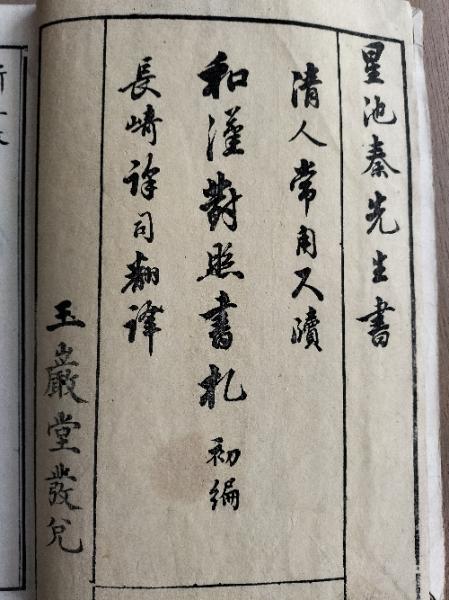 星池秦先生書
清人常用尺牘
和漢對照書札 初編
長崎譯司翻譯
玉巖堂發兌